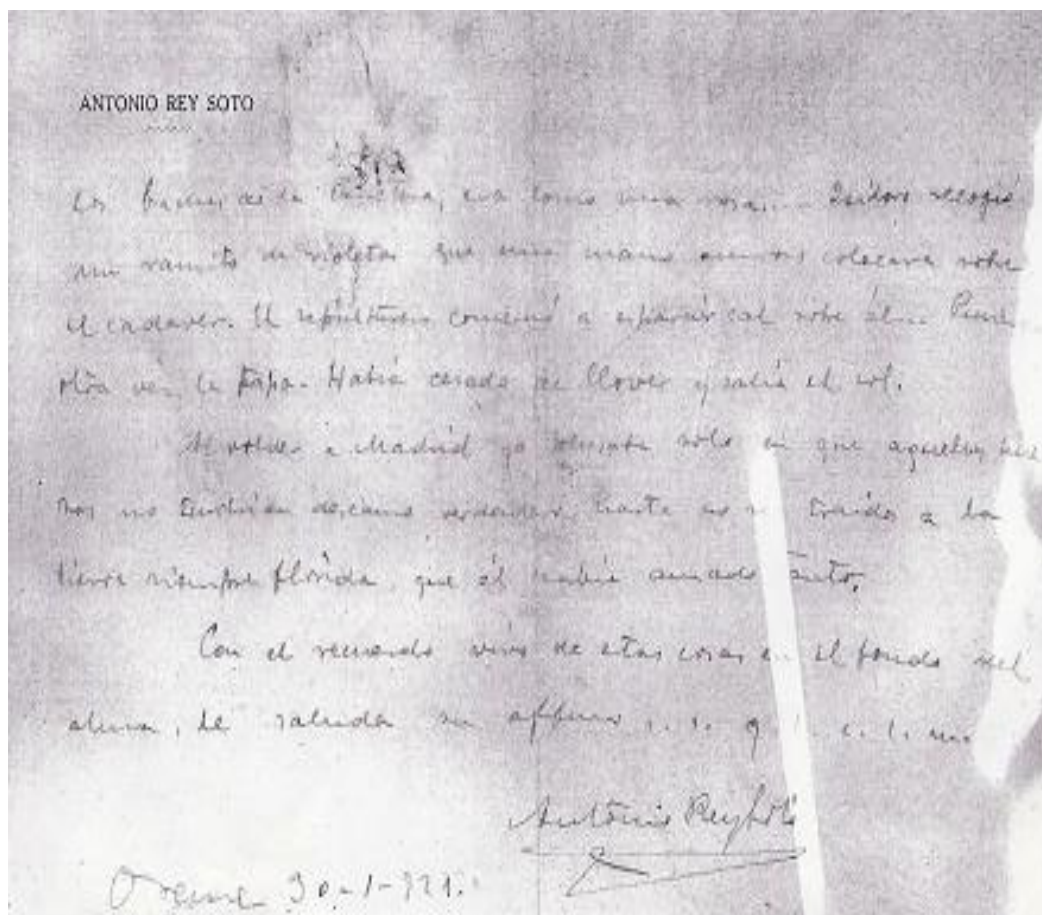 ANTONIO REY SOTO
Los de la era como una rosa... Isidoro recogió
un ramito de violetas que una mano colocara sobre
el cadáver. El sepulturero comenzó a esparcir cal sobre él...
otra vez la tapa. Había cesado de llover y salía el sol.
Al volver a Madrid yo solo en que aquellos
no tendrían descanso hasta no traídos a la
tierra siempre florida, que él había amado tanto.
Con el recuerdo vivo de estas cosas en el fondo del
alma, le saluda su affmo s. s. q
Antonio Rey Soto
Orense 30-1-921.